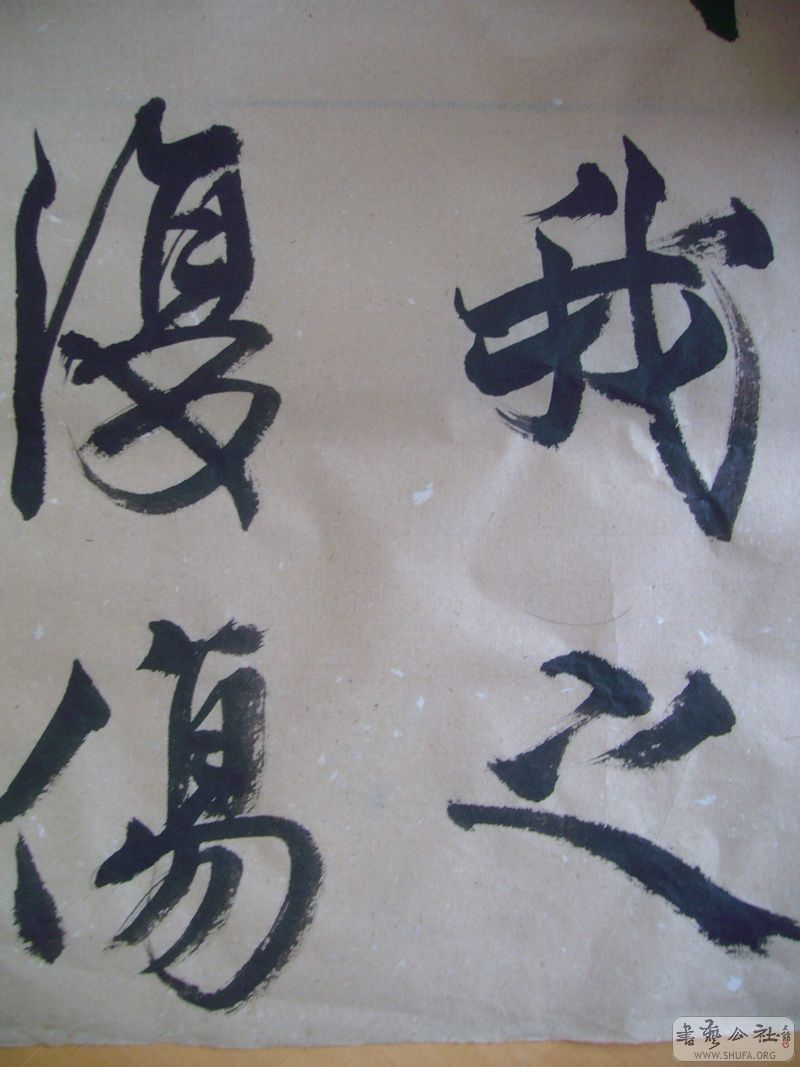 我之
復傷
書藝公社
WWW.SHUFA.ORG